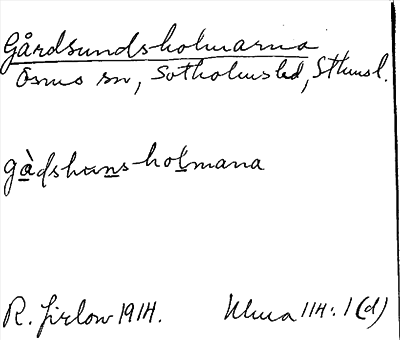 Gårdsundsholmarna
Ösmo sn, Sotholms hd, Sthmsl.
gàdshansholmana
R. Jirlow 1914.
114: 1 (d)